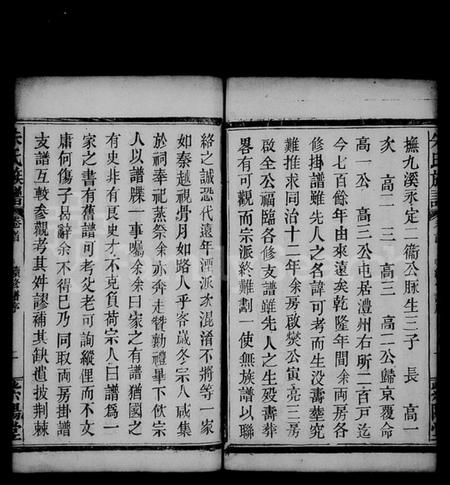 撫九溪永定二衞公豚生三子 長 高一
次 高二 三 高三 高二公歸京覆命
高一公 高三公屯居澧州右所二百戸迄
今七百餘年由來遠矣乾隆年間余両房各
修掛譜雖先人之名諱可考而生没壽塟究
難推求同治十二年余房啟爕公寅亮三房
啟全公福臨各修支譜雖先人之生殁壽塟
畧有可觀而宗派終難劃一使無族譜以聯
絡之誠恐代遠年湮派次混淆不將等一家
如秦越視骨月如路人乎客歲冬宗人咸集
於祠奉祀蒸祭余亦奔走贊勷禮畢下伙宗
人以譜牒一事囑余余曰家之有譜猶國之
有史非有良史才不克負荷宗人曰譜爲一
家之書有舊譜可考父老可詢縱俚而不文
庸何傷子曷辭余不得已乃同取両房掛譜
支譜互較参觀者其舛謬補其缺遺披荆棘
朱氏族譜
卷首
續修譜序
一
紫陽堂